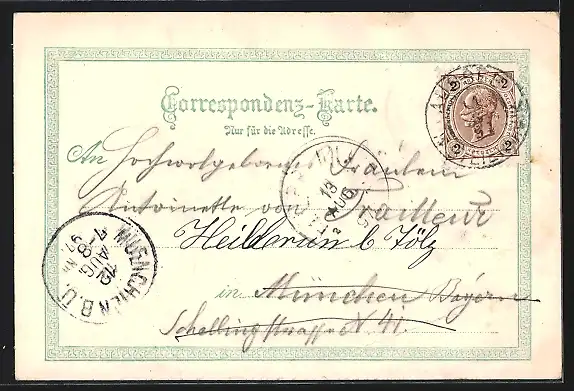 Correspondenz-Karte.
Nur für die Adresse.
An Hochwolgeborne Fräulein
Antoinette von
Heilbrunn b Tölz
in München Bayern
Schellingstrasse N 41
MUENCHEN B.U.
7-8
AUG
12
13
AUG
2 2
2 2